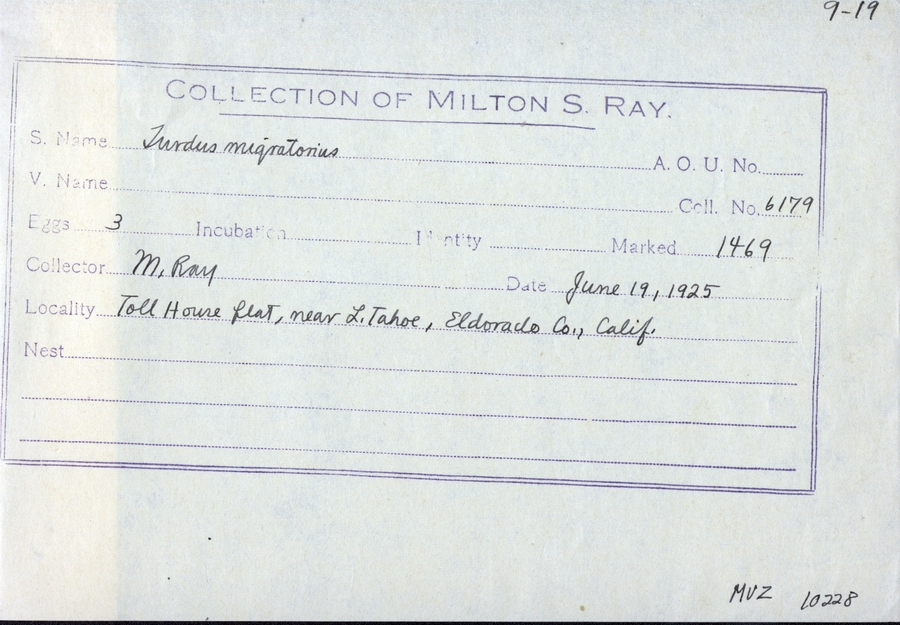 9-19
COLLECTION OF MILTON S. RAY.
S. Name Turdus migratorius A. O. U. No.
V. Name Coll. No. 6179
Eggs 3 Incubation Identity Marked 1469
Collector M. Ray Date June 19, 1925
Locality Toll House flat, near L. Tahoe, Eldorado Co., Calif.
Nest
MVZ 10228